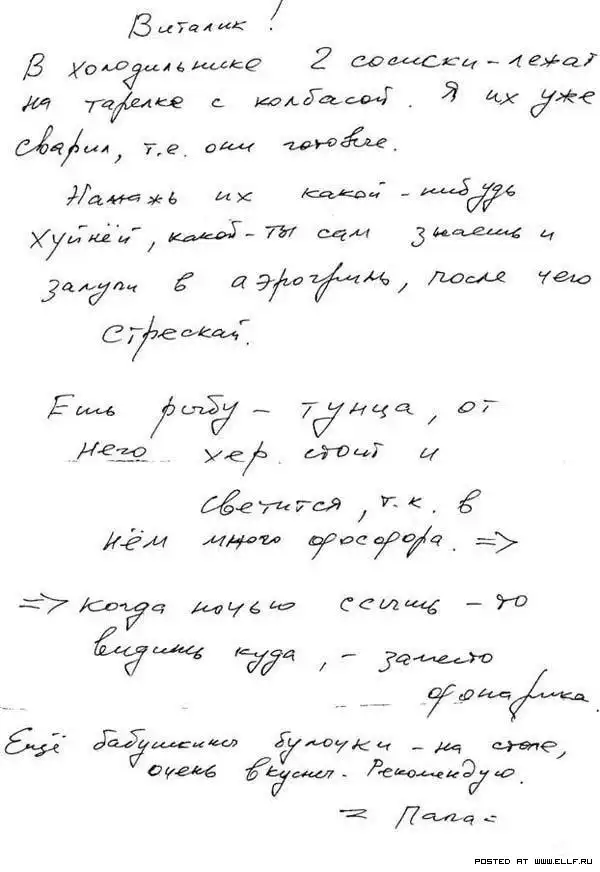 Виталик!
В холодильнике 2 сосиски - лежат
на тарелке с колбасой. Я их уже
сварил, т.е. они готовые.
Намажь их какой-нибудь
хуйнёй, какой-ты сам знаешь и
залупи в аэрогриль, после чего
стрескай.
Ешь рыбу - тунца, от
него хер стоит и
светится, т.к. в
нём много фосфора. =>
=> Когда ночью ссышь - то
видишь куда, - заместо
фонарика.
Ещё бабушкины булочки - на столе,
очень вкусные. Рекомендую.
= Папа =
POSTED AT WWW.ELLF.RU